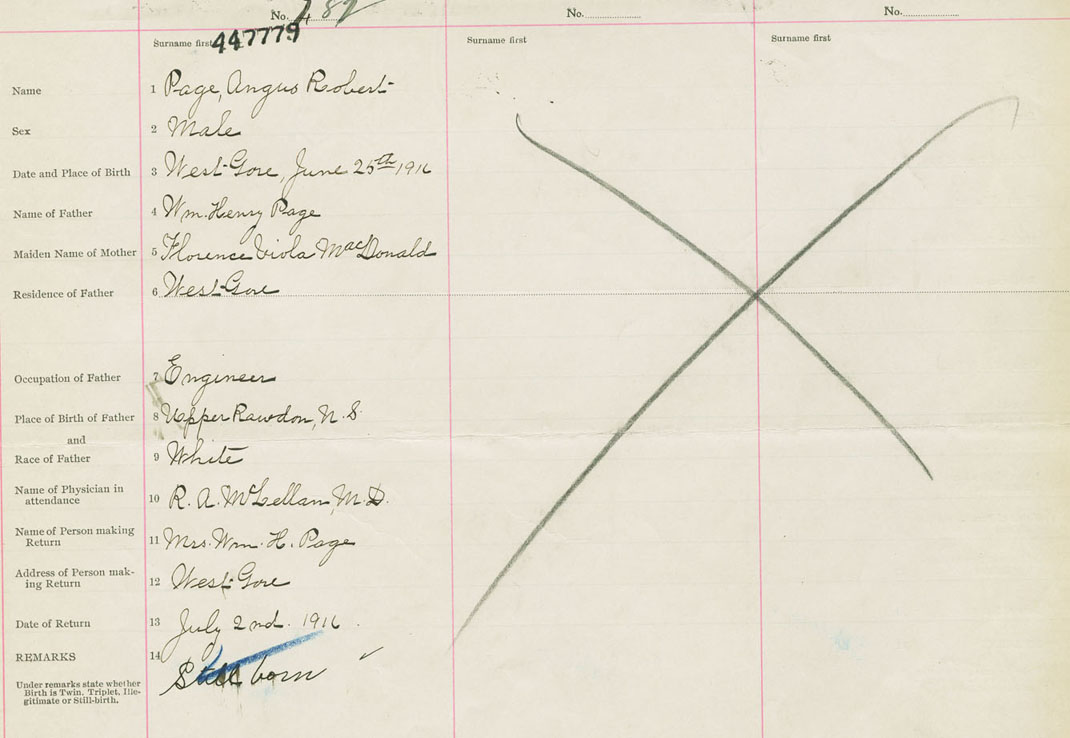 No. No. No.
447779
Surname first Surname first Surname first
Name 1 Page, Angus Robert
Sex 2 Male
Date and Place of Birth 3 West Gore, June 25th 1916
Name of Father 4 Wm. Henry Page
Maiden Name of Mother 5 Florence Viola MacDonald
Residence of Father 6 West Gore
Occupation of Father 7 Engineer
Place of Birth of Father 8 Upper Rawdon, N. S.
and
Race of Father 9 White
Name of Physician in
attendance 10 R. A. McLellan, M.D.
Name of Person making
Return 11 Mrs. Wm. H. Page
Address of Person mak-
ing Return 12 West Gore
Date of Return 13 July 2nd. 1916.
REMARKS 14
Still born
Under remarks state whether
Birth is Twin, Triplet, Ille-
gitimate or Still-birth.